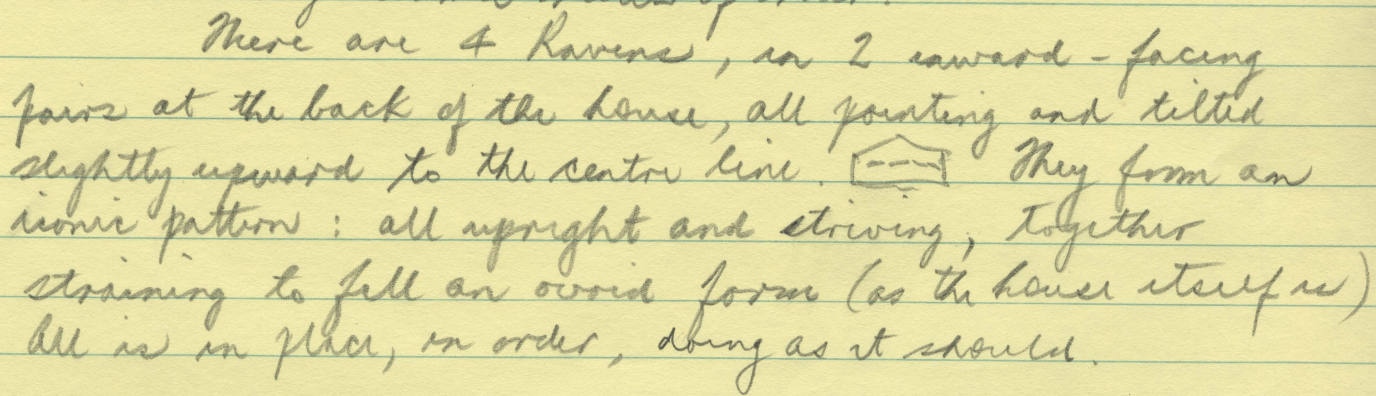 There are 4 Ravens, in 2 inward-facing
pairs at the back of the house, all pointing and tilted
slightly upward to the centre line. They form an
iconic pattern: all upright and striving, together
straining to fill an ovoid form (as the house itself is)
All is in place, in order, doing as it should.